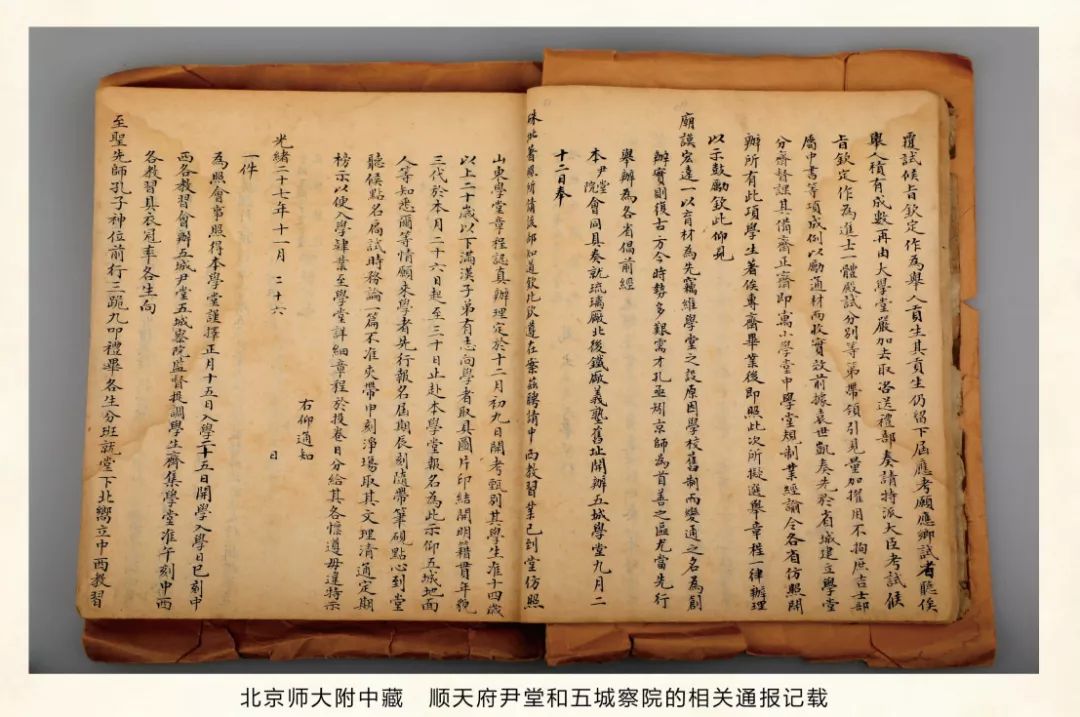 覆試候旨欽定作為舉人貢生其貢生仍留下屆應考願應鄉試者聽俟
舉人積有成數再由大學堂嚴加去取咨送禮部奏請特派大臣考試候
旨欽定作為進士一體殿試分別等第帶領引見量加擢用不拘庶吉士部
屬中書等項成例以勵通材而收實效前據袁世凱奏先於省城建立學堂
分齋督課其備齋正齋即寓小學堂中學堂規制業經諭令各省仿照開
辦所有此項學生著俟專齋畢業後即照此次所擬選舉章程一律辦理
以示鼓勵欽此仰見
廟謨宏遠一以育材為先竊維學堂之設原因學校舊制而變通之名為創
辦實則復古方今時勢多艱需才孔亟矧京師為首善之區尤當先行
舉辦為各省倡前經
本尹堂院會同具奏就琉璃廠北後鐵廠義塾舊址開辦五城學堂九月二
十二日奉
硃批著照所請該部知道欽此欽遵在案茲聘請中西教習業已到堂仿照
山東學堂章程認真辦理定於十二月初九日開考甄別其學生准十四歲
以上二十歲以下滿漢子弟有志向學者取具圖片印結開明籍貫年貌
三代於本月二十六日起至三十日止赴本學堂報名為此示仰五城地面
人等知悉爾等情願來學者先行報名屆期辰刻隨帶筆硯點心到堂
聽候點名扃試時務論一篇不准夾帶申刻淨場取其文理清通定期
榜示以便入學肄業至學堂詳細章程於投卷日分給其各懍遵毋違特示
右仰通知
光緒二十七年十一月二十六日
一件
為照會事照得本學堂謹擇正月十五日入學二十五日開學入學日巳刻中
西各教習會辦五城尹堂五城察院監督提調學生齊集學堂准午刻中西
各教習具衣冠率各生向
至聖先師孔子神位前行三跪九叩禮畢各生分班就堂下北嚮立中西教習
北京师大附中藏 顺天府尹堂和五城察院的相关通报记载